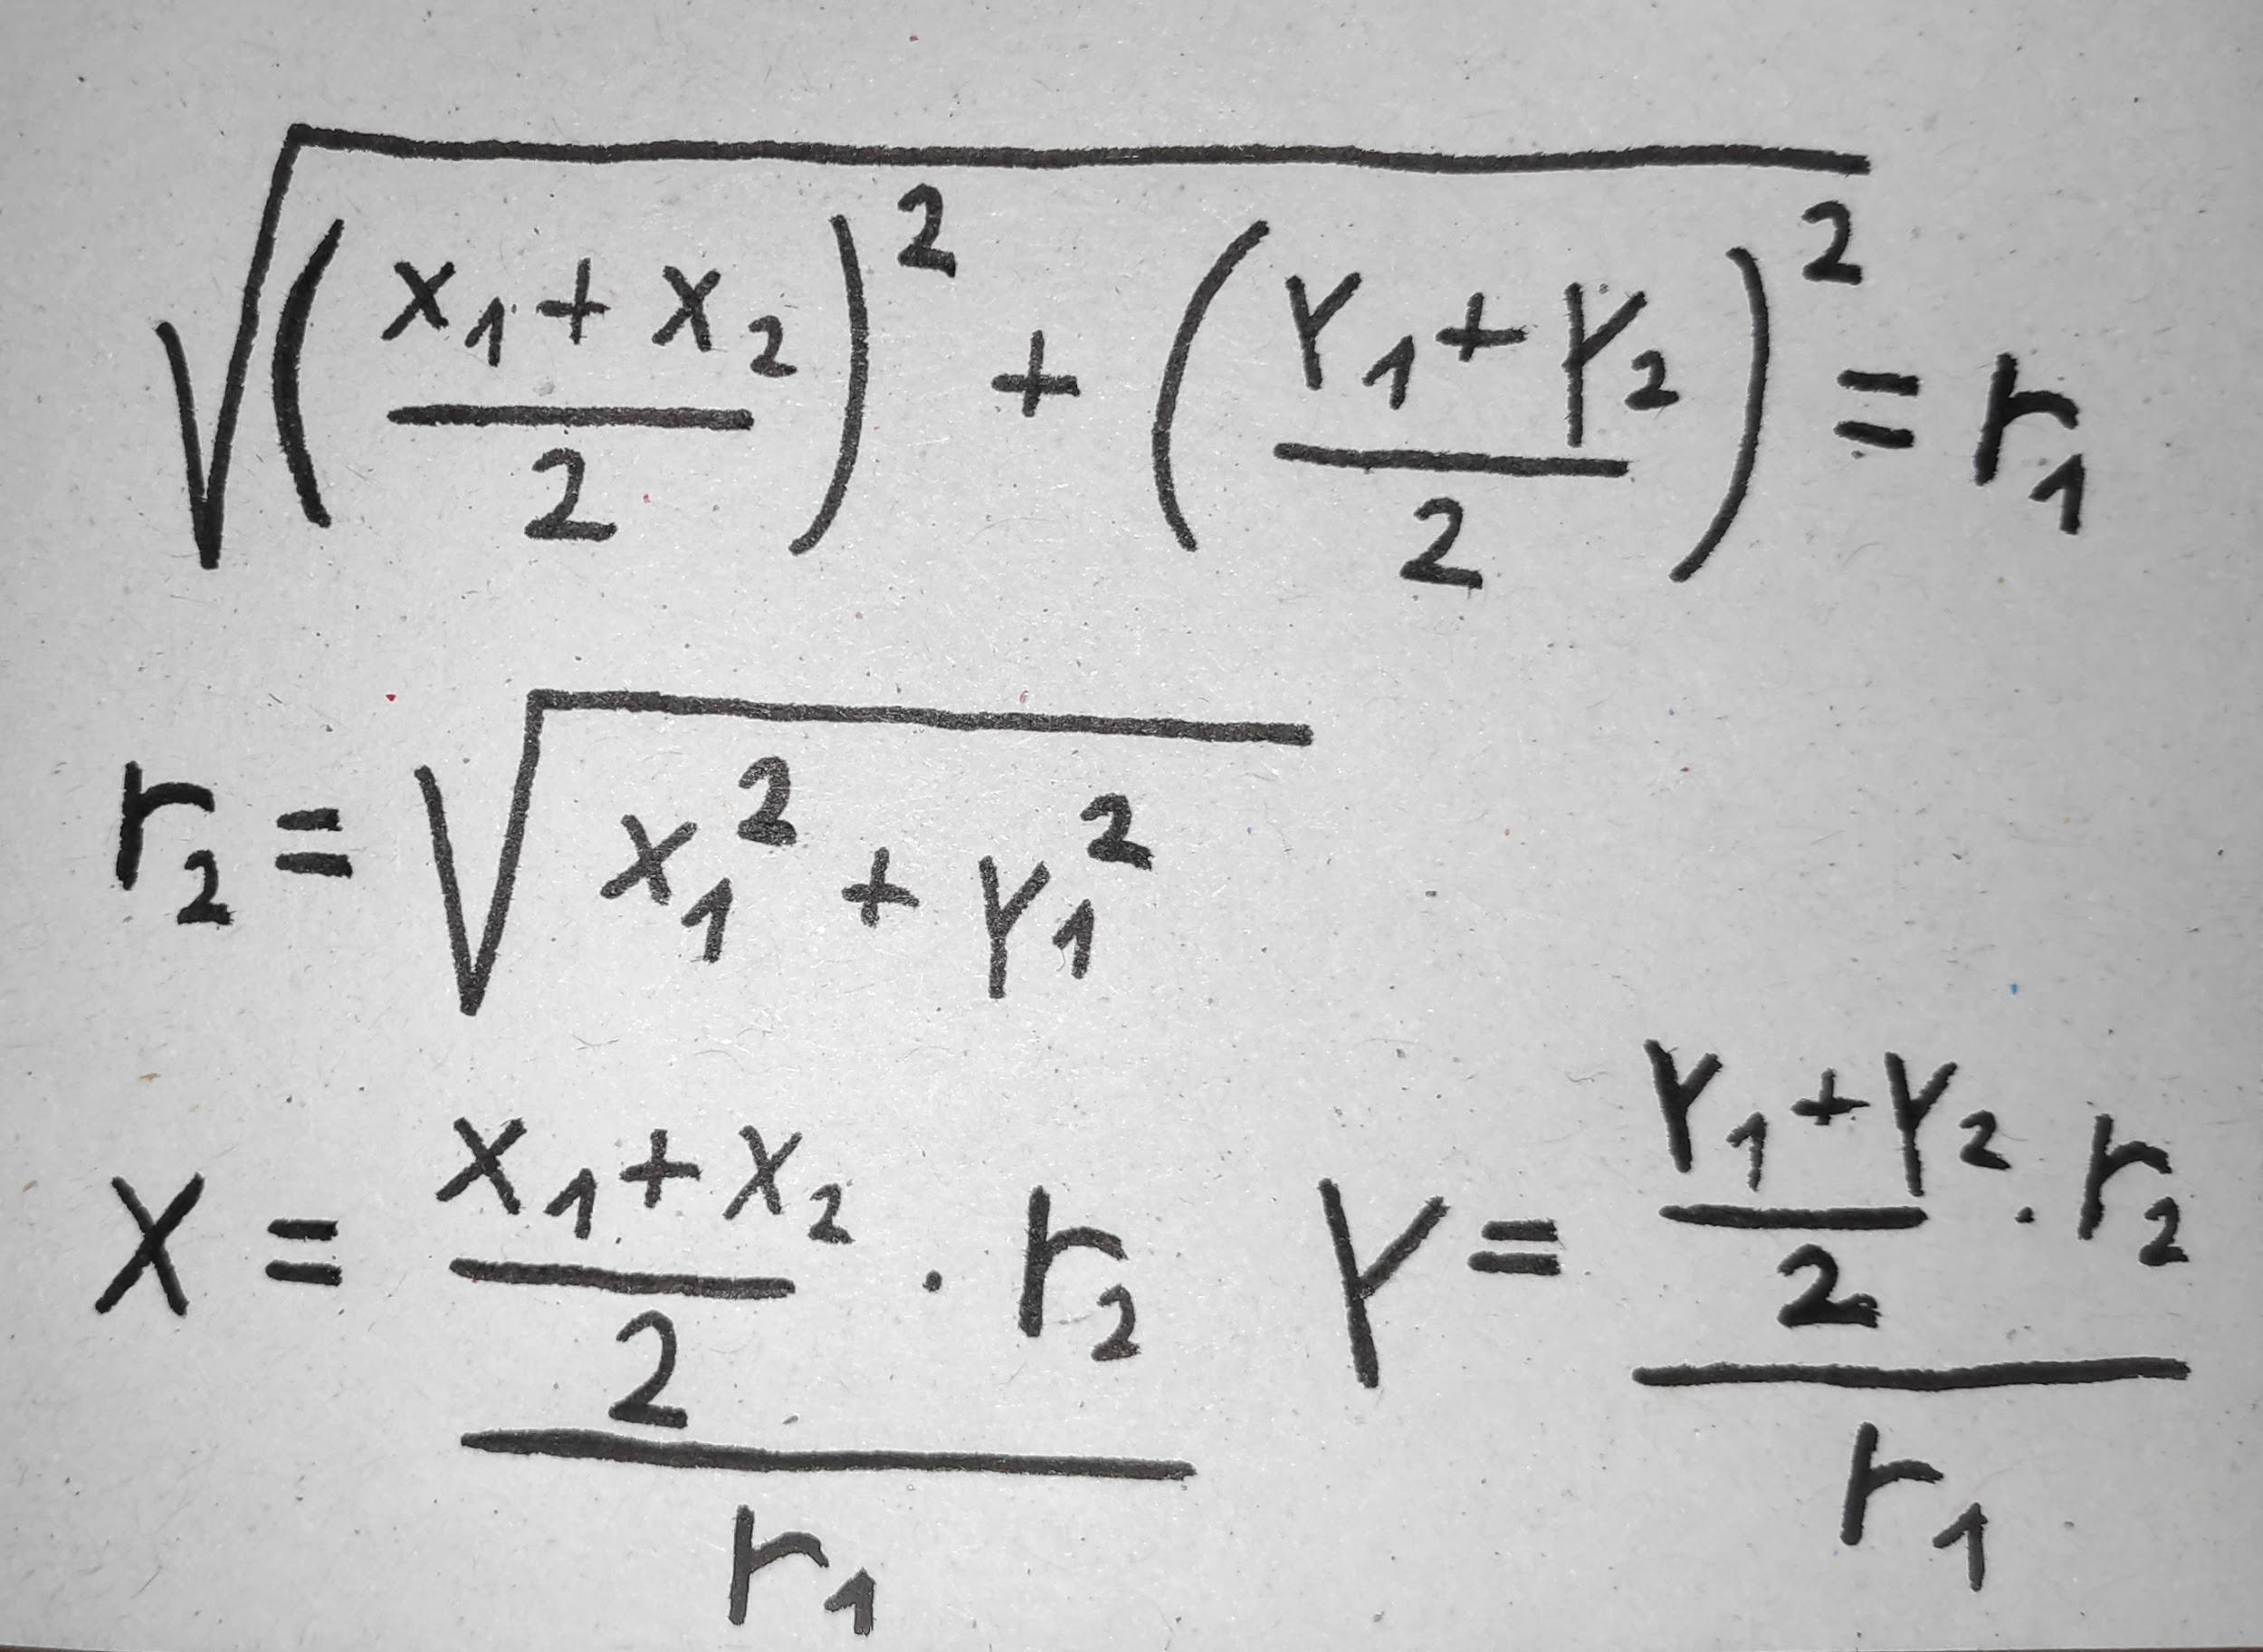 √((x₁+x₂)/2)² + ((y₁+y₂)/2)² = r₁
r₂ = √x₁² + y₁²
x = ((x₁+x₂)/2 · r₂)/r₁ y = ((y₁+y₂)/2 · r₂)/r₁